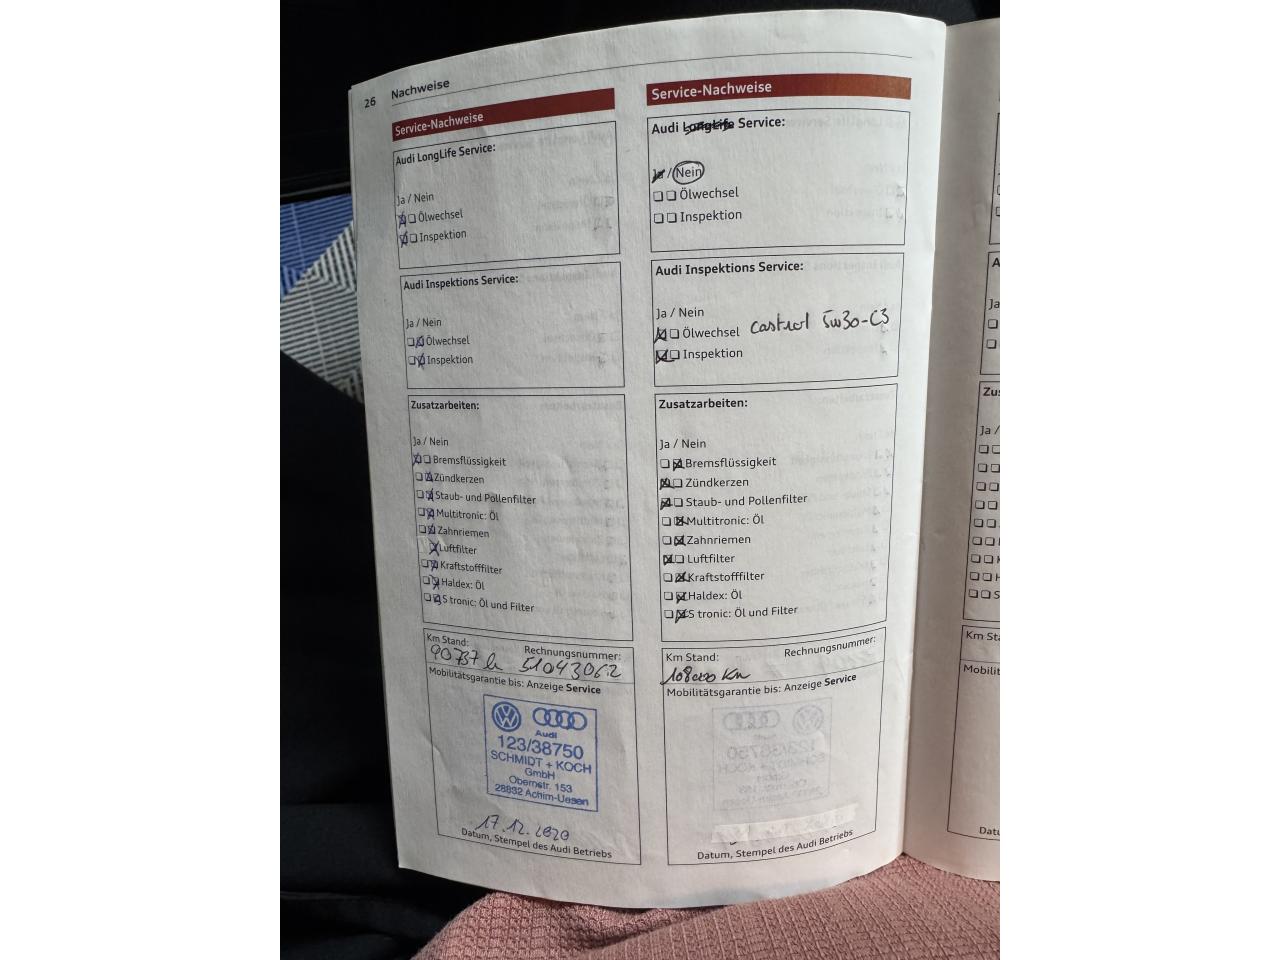 26 Nachweise
Service-Nachweise
Audi LongLife Service:
Ja / Nein
Ölwechsel
Inspektion
Audi Inspektions Service:
Ja / Nein
Ölwechsel
Inspektion
Zusatzarbeiten:
Ja / Nein
Bremsflüssigkeit
Zündkerzen
Staub- und Pollenfilter
Multitronic: Öl
Zahnriemen
Luftfilter
Kraftstofffilter
Haldex: Öl
S tronic: Öl und Filter
Km Stand: Rechnungsnummer:
90737 51043062
Mobilitätsgarantie bis: Anzeige Service
Audi
123/38750
SCHMIDT + KOCH
GmbH
Obernstr. 153
28832 Achim-Uesen
17.12.2020
Datum, Stempel des Audi Betriebs
Service-Nachweise
Audi LongLife Service:
Ja / Nein
Ölwechsel
Inspektion
Audi Inspektions Service:
Ja / Nein
Ölwechsel Castrol 5w30-C3
Inspektion
Zusatzarbeiten:
Ja / Nein
Bremsflüssigkeit
Zündkerzen
Staub- und Pollenfilter
Multitronic: Öl
Zahnriemen
Luftfilter
Kraftstofffilter
Haldex: Öl
S tronic: Öl und Filter
Km Stand: Rechnungsnummer:
108000 Km
Mobilitätsgarantie bis: Anzeige Service
Datum, Stempel des Audi Betriebs